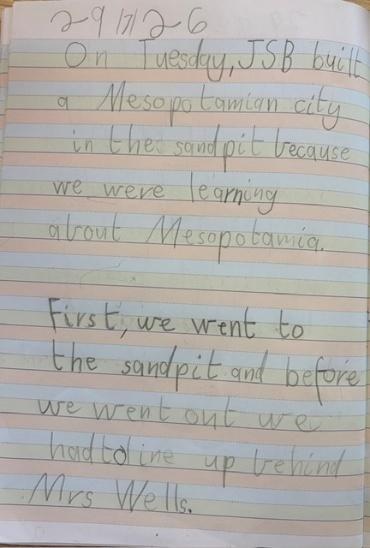 On Tuesday, JSB built
a Mesopotamian city
in the sandpit because
we were learning
about Mesopotamia.
First, we went to
the sandpit and before
we went out we
had to line up behind
Mrs Wells.